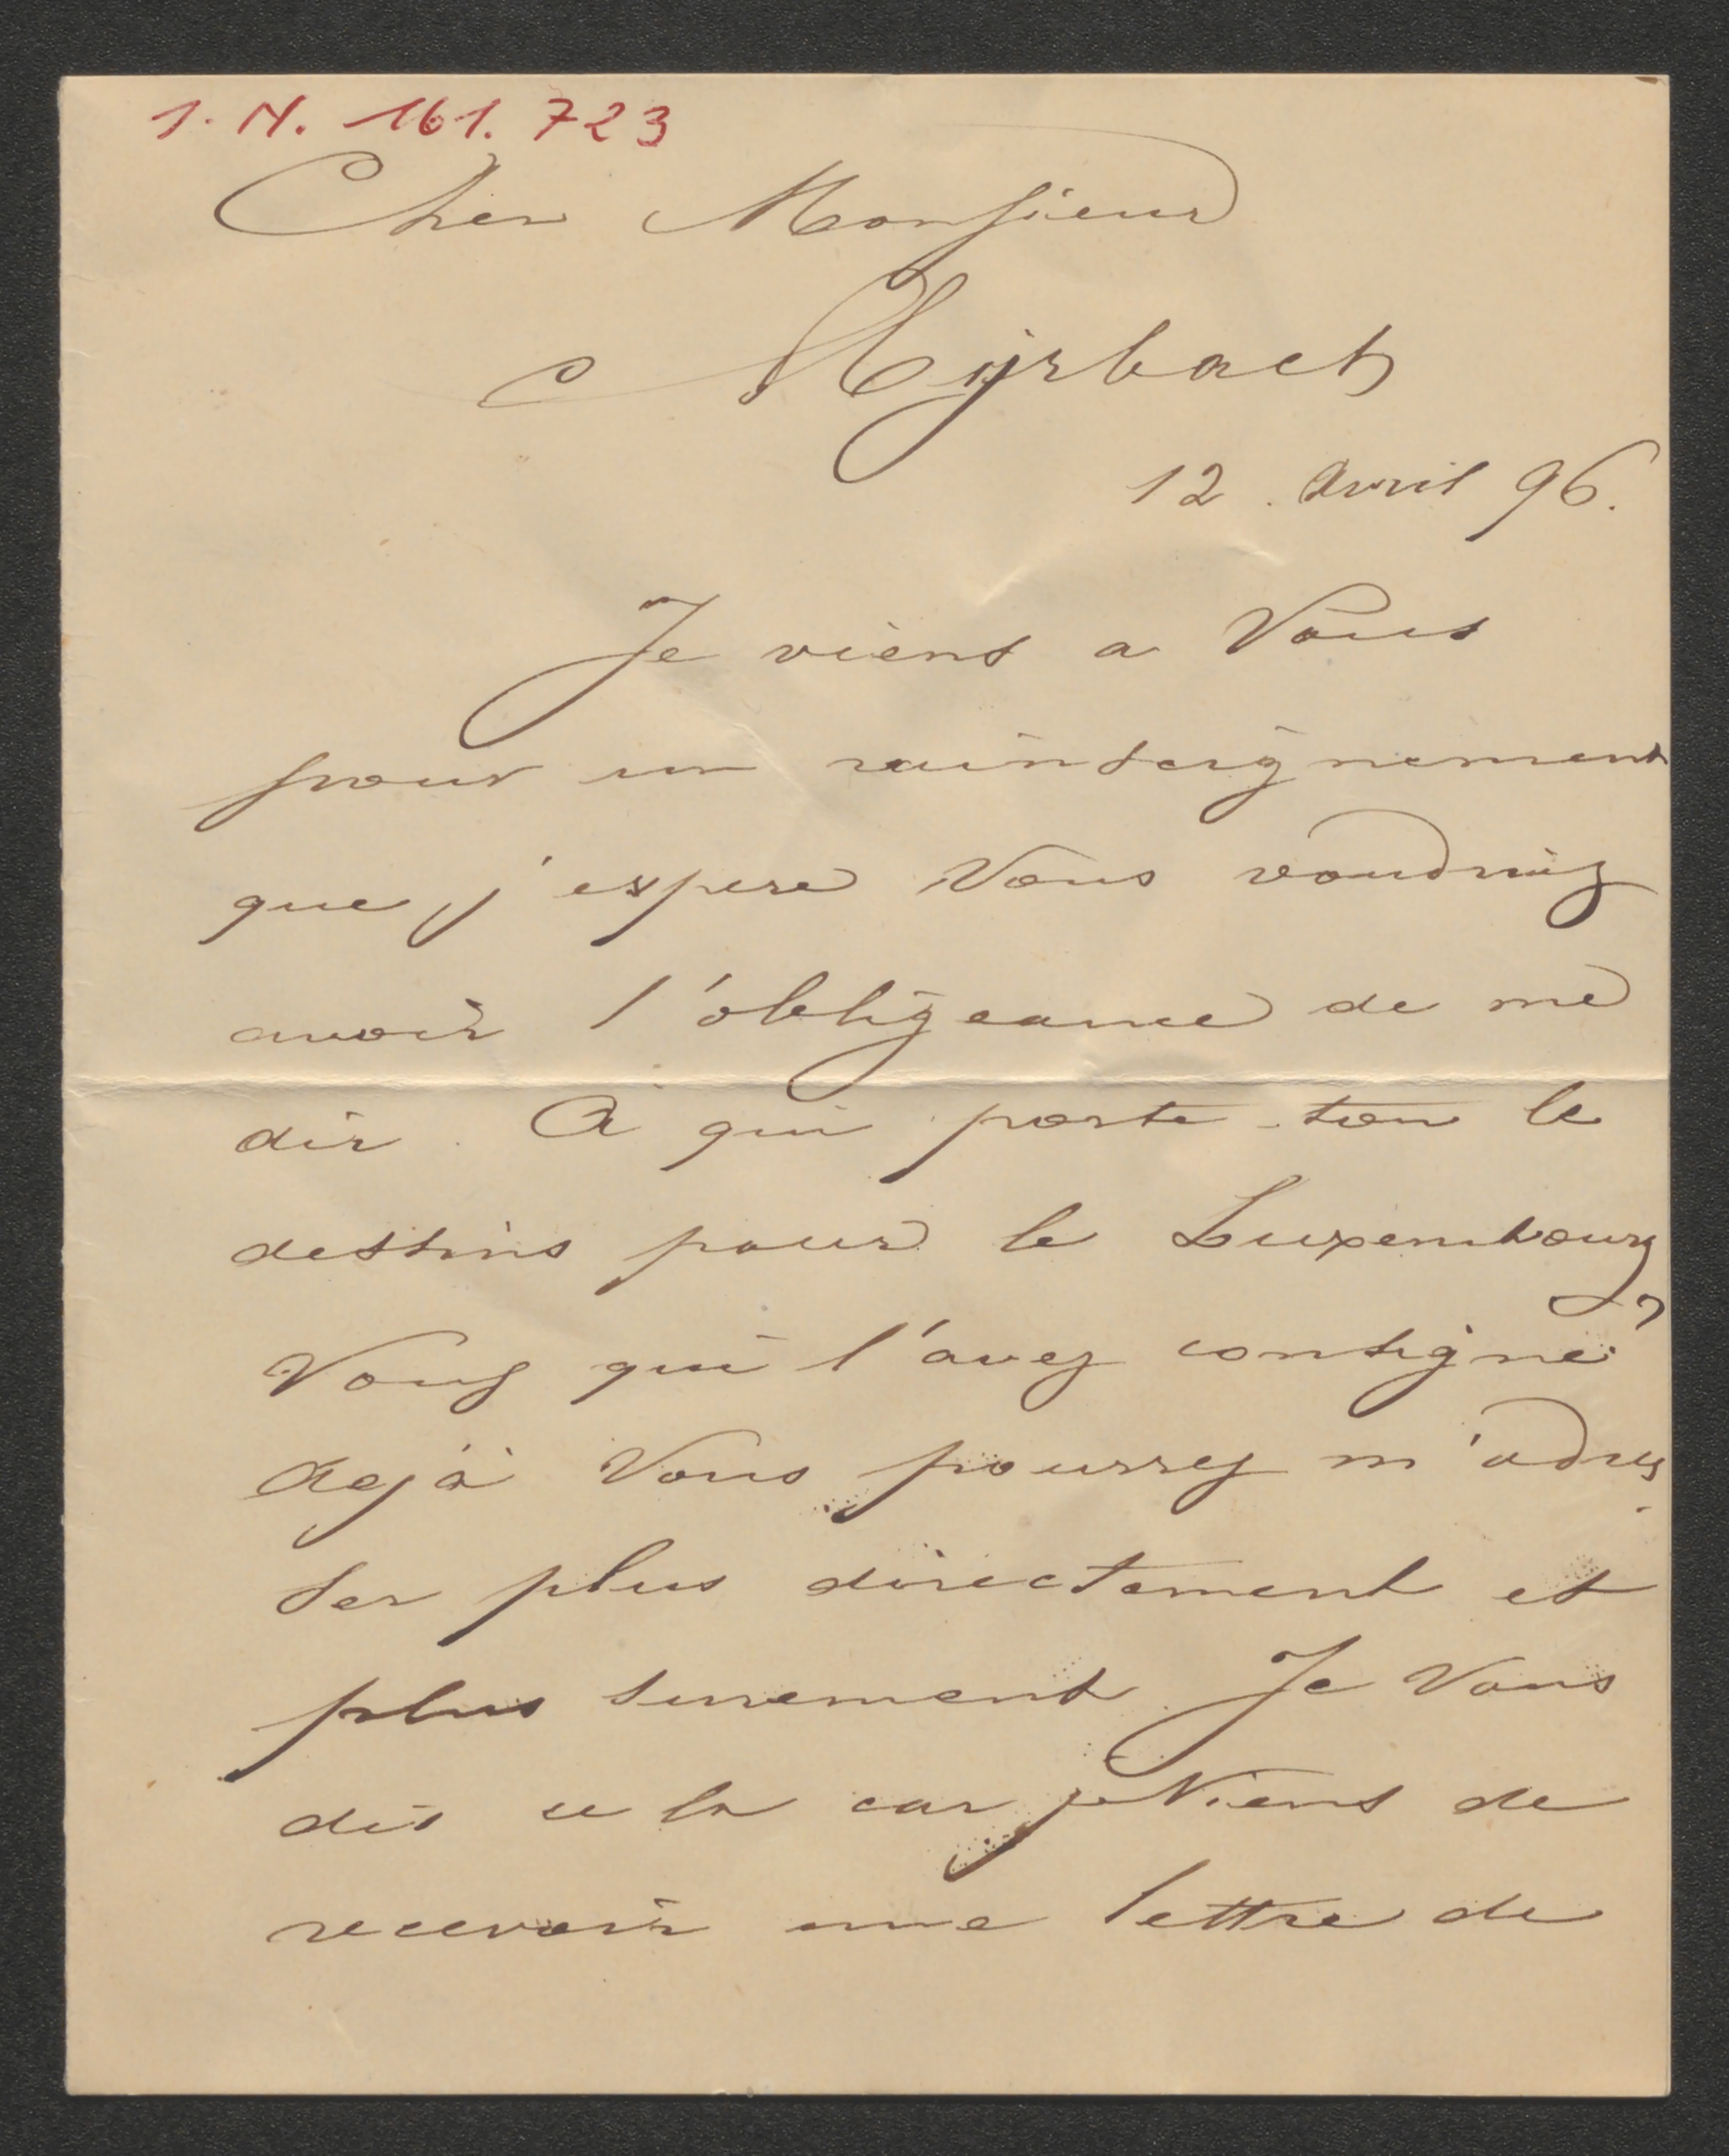 I. N. 161.723
Cher Monsieur
Myrbach
12. Avril 96.
Je viens a Vous
pour un rainseignement
que j'espere Vous voudriez
avoir l'obligeance de me
dir. A qui porte-ton le
dessins pour le Luxembourg?
Vous qui l'avez consigné
dejà Vous pourrez m'adres
ser plus directement et
plus surement. Je Vous
dis cela car je Viens de
recevoir une lettre de